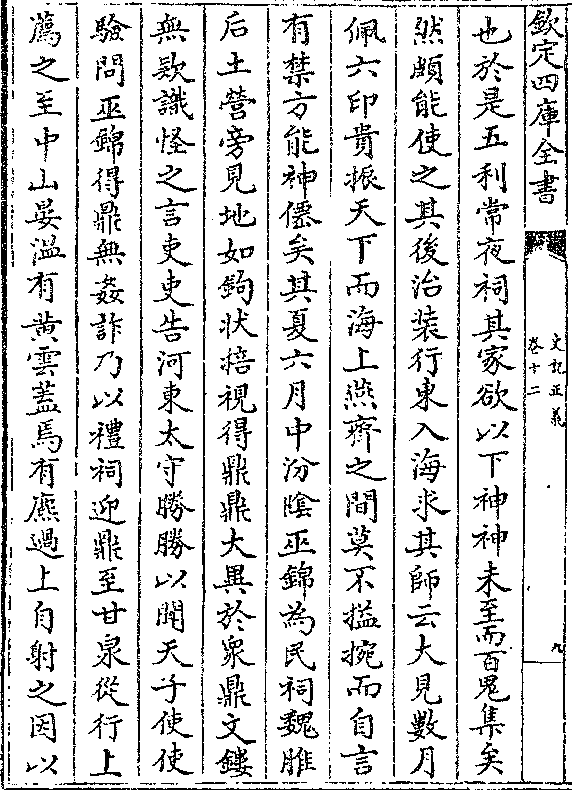 欽定四庫全書
史記正義
卷十二
九
也於是五利常夜祠其家欲以下神神未至而百鬼集矣
然頗能使之其後治装行東入海求其師云大見數月
佩六印貴振天下而海上燕齊之間莫不搤捥而自言
有禁方能神僊矣其夏六月中汾陰巫錦為民祠魏脽
后土營旁見地如鉤状掊視得鼎鼎大異於衆鼎文鏤
無款識怪之言吏吏告河東太守勝勝以聞天子使使
驗問巫錦得鼎無姦詐乃以禮祠迎鼎至甘泉從行上
薦之至中山晏溫有黄雲蓋焉有麃過上自射之因以